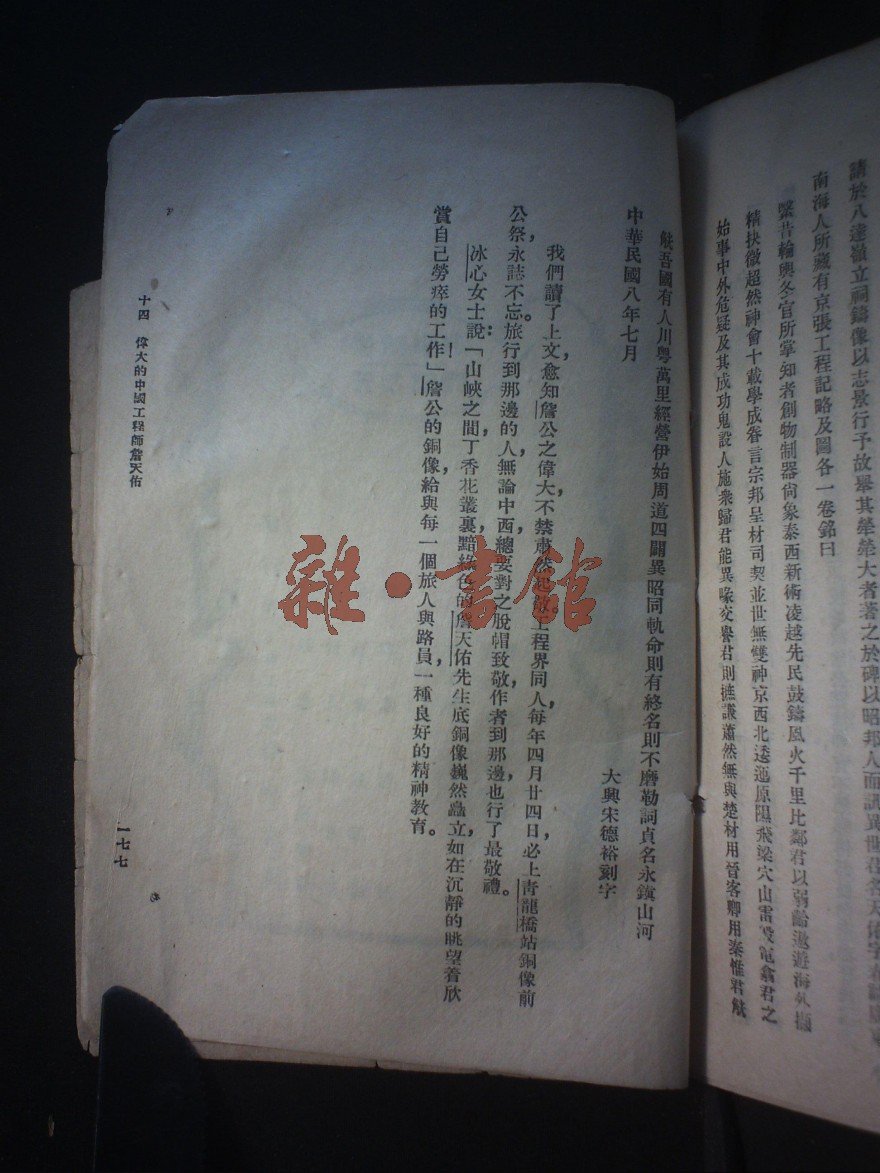 請於八達嶺立祠鑄像以志景行予故畢其犖犖大者著之於碑以昭邦人而訊異世君名天佑字
南海人所藏有京張工程記略及圖各一卷銘曰
緊昔輪輿冬官所掌知者創物制器尙象泰西新術凌越先民鼓鑄風火千里比鄰君以弱齡遨遊海外擷
精抉微超然神會十載學成眷言宗邦呈材司契並世無雙神京西北逶迤原隰飛梁穴山雷殷電翕君之
始事中外危疑及其成功鬼設人施衆歸君能異喙交譽君則撝謙蕭然無與楚材用晉客卿用秦惟君觥
觥吾國有人川粵萬里經營伊始周道四闢異昭同軌命則有終名則不磨勒詞貞名永鎭山河
大興宋德裕刻字
中華民國八年七月
我們讀了上文，愈知詹公之偉大，不禁肅然起敬。工程界同人，每年四月廿四日，必上靑龍橋站銅像前
公祭，永誌不忘。旅行到那邊的人，無論中西，總要對之脫帽致敬，作者到那邊，也行了最敬禮。
冰心女士說：「山峽之間，丁香花叢裏，黯綠色的詹天佑先生底銅像，巍然矗立，如在沉靜的眺望着欣
賞自己勞瘁的工作！」詹公的銅像，給與每一個旅人與路員，一種良好的精神敎育。
十四　偉大的中國工程師詹天佑
一七七
雜·書館